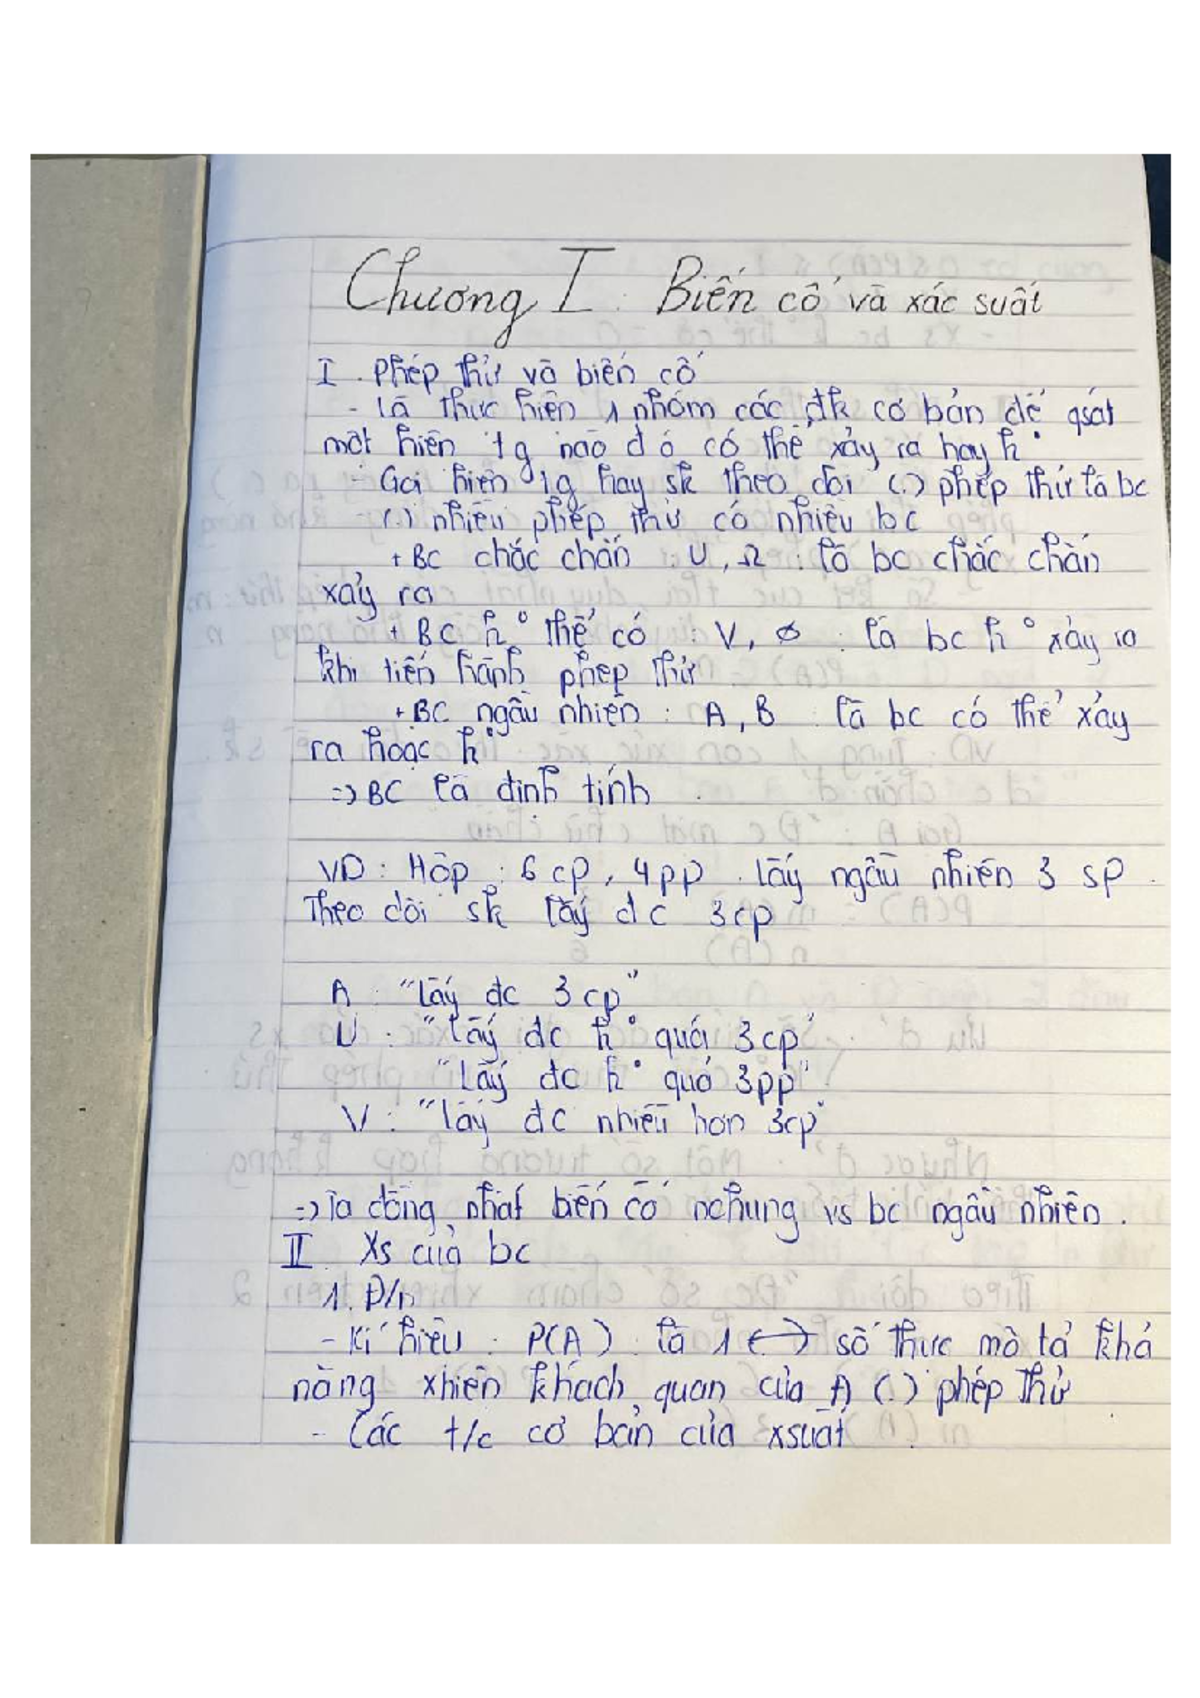 Chương I : Biến cố và xác suất
I. Phép thử và biến cố
- Là thực hiện 1 nhóm các đk cơ bản để qsát
một hiện tg nào đó có thể xảy ra hay k°
- Gọi hiện tg hay sk theo dõi (.) phép thử là bc
- (.) nhiều phép thử có nhiều bc
+ BC chắc chắn U, Ω : là bc chắc chắn
xảy ra
+ BC k° thể có : V, ∅ : là bc k° xảy ra
khi tiến hành phép thử
+ BC ngẫu nhiên : A, B là bc có thể xảy
ra hoặc k°
=> BC là định tính
VD : Hộp : 6 cp, 4pp. lấy ngẫu nhiên 3 sp.
Theo dõi sk lấy đc 3cp
A : "lấy đc 3cp"
U : "lấy đc k° quá 3cp"
"lấy đc k° quá 3pp"
V : "lấy đc nhiều hơn 3cp"
=> Ta đồng nhất biến cố nchung vs bc ngẫu nhiên.
II. Xs của bc
1. Đ/n
- Kí hiệu : P(A) : là 1 <-> số thực mô tả khả
năng xhiện khách quan của A (.) phép thử
- Các t/c cơ bản của xsuất